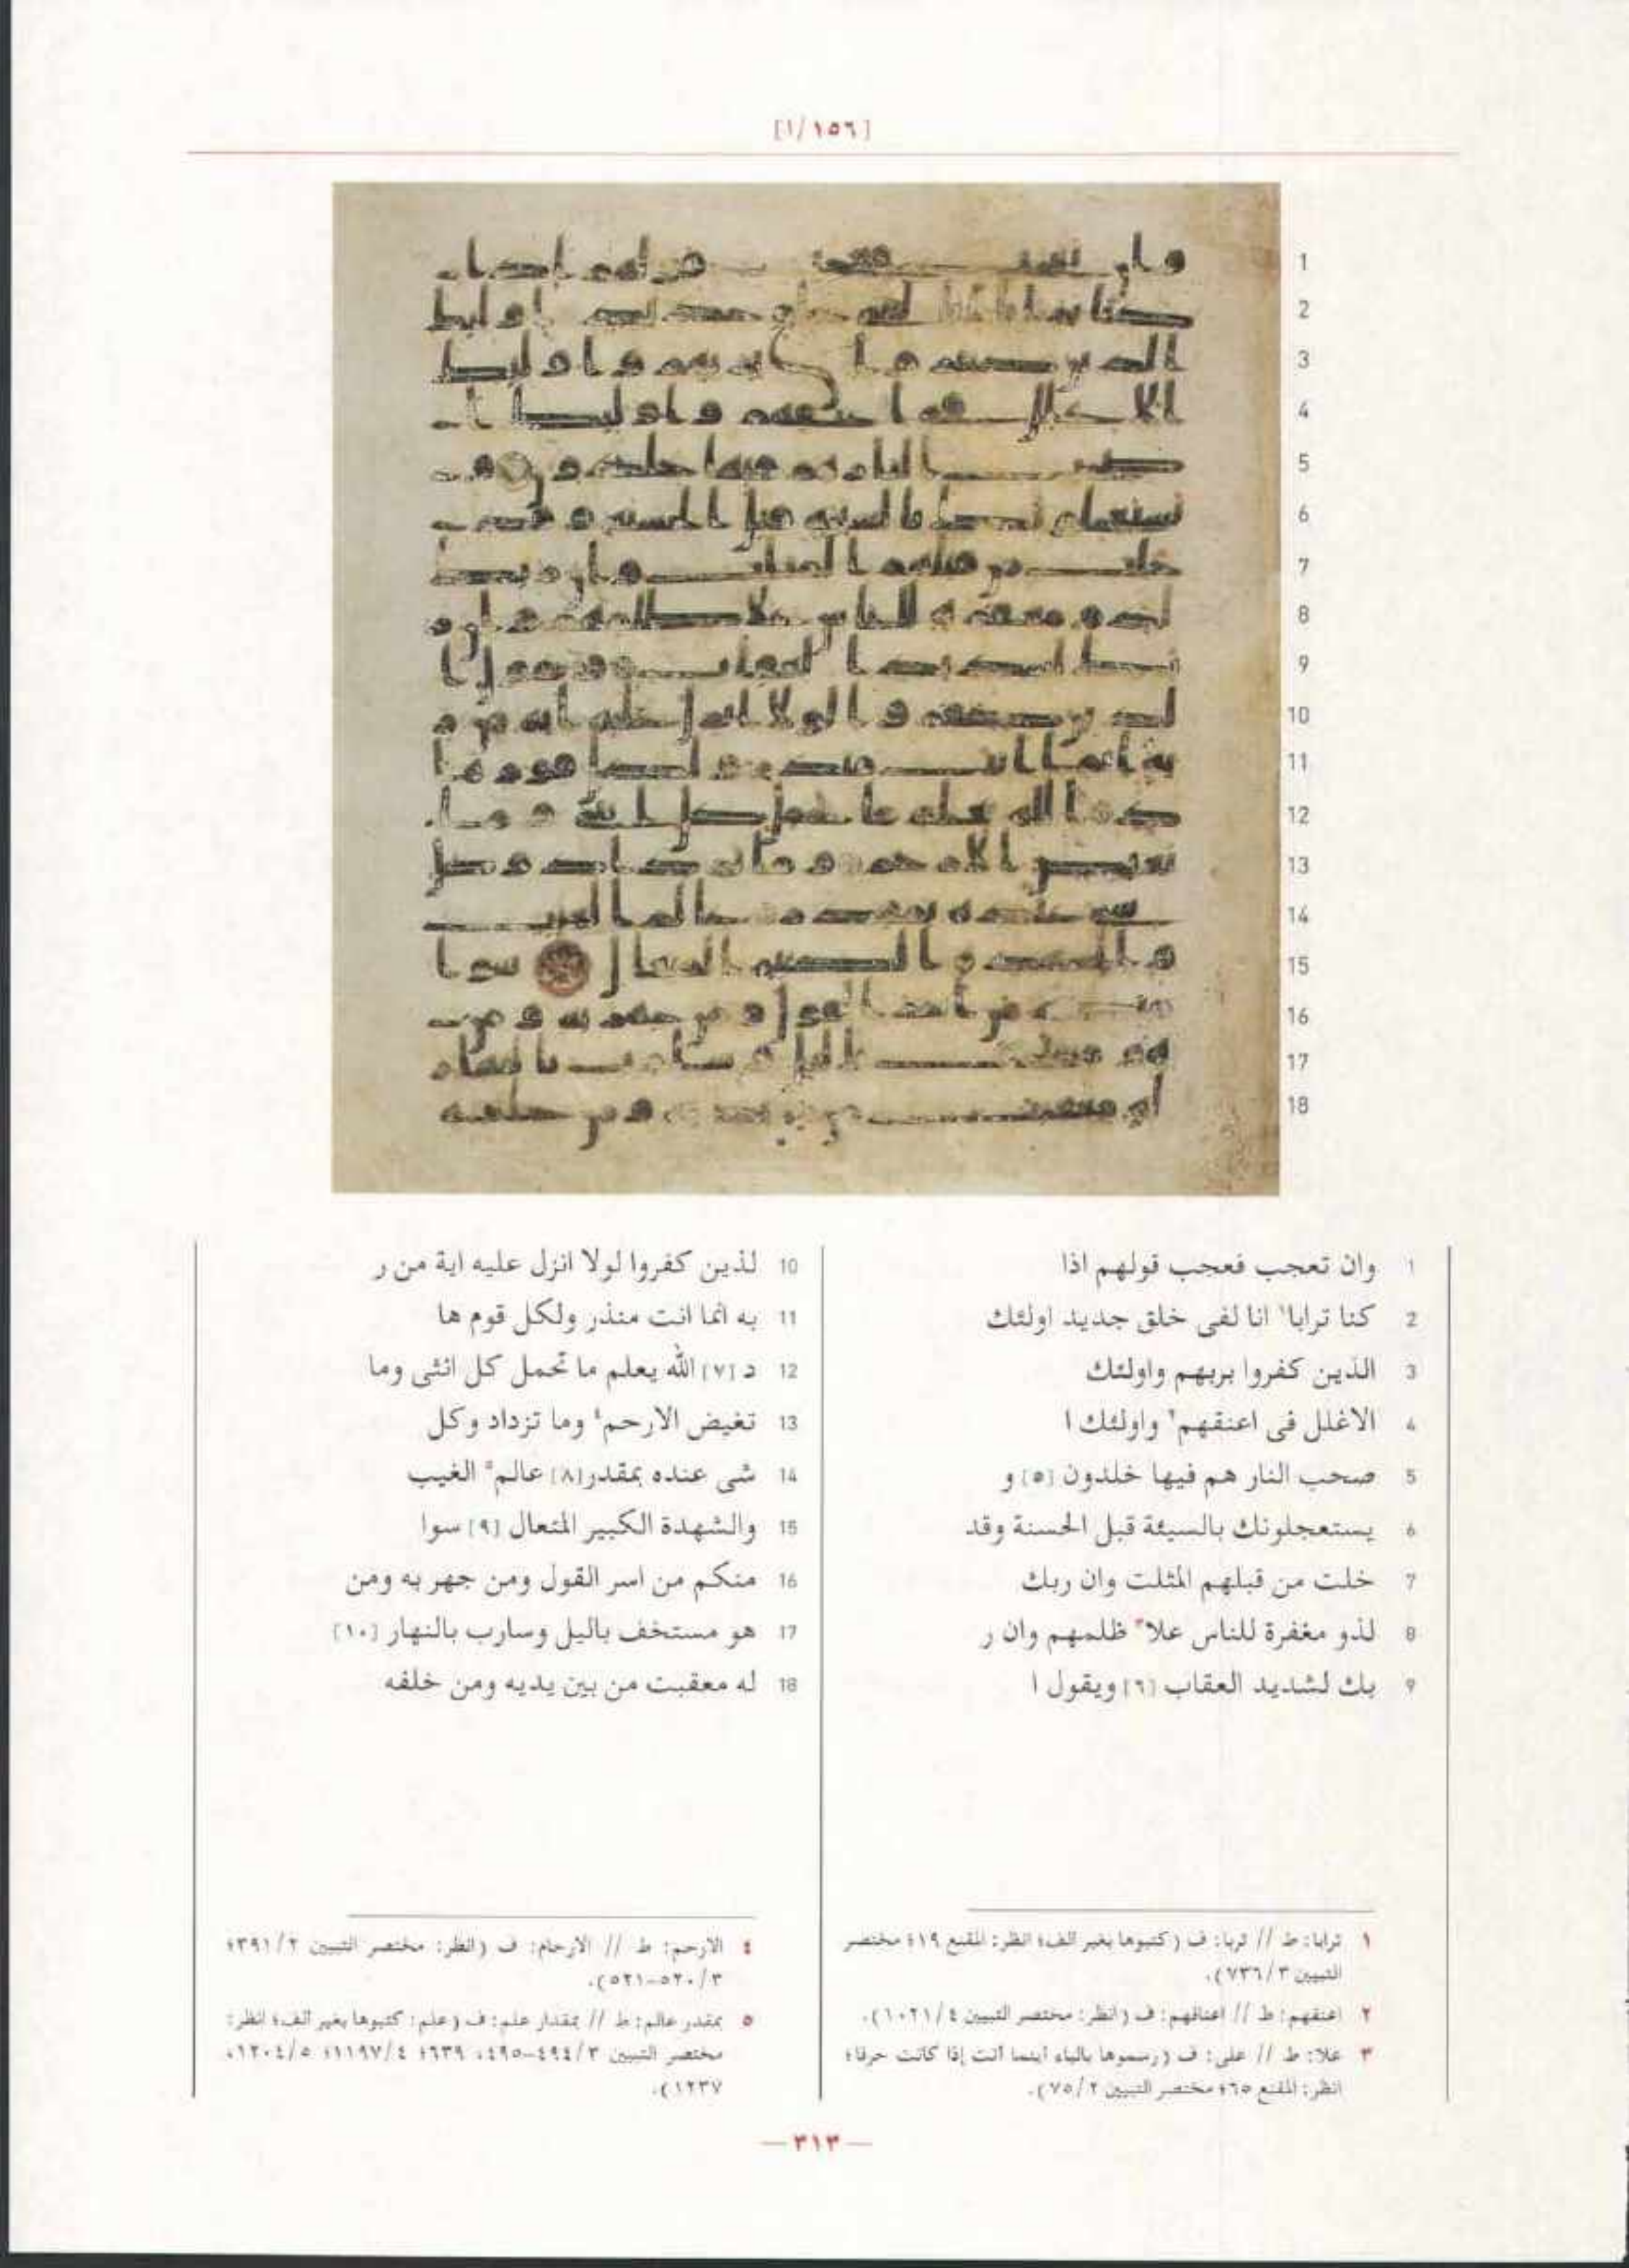 [١٥٦/ا]
1
2
3
4
5
6
7
8
9
10
11
12
13
14
15
16
17
18
1 وان تعجب فعجب قولهم اذا
2 كنا ترابا١ انا لفى خلق جديد اولئك
3 الذين كفروا بربهم واولئك
4 الاغلل فى اعنقهم٢ واولئك ا
5 صحب النار هم فيها خلدون [٥] و
6 يستعجلونك بالسيئة قبل الحسنة وقد
7 خلت من قبلهم المثلت وان ربك
8 لذو مغفرة للناس علا٣ ظلمهم وان ر
9 بك لشديد العقاب [٦] ويقول ا
10 لذين كفروا لولا انزل عليه اية من ر
11 به انما انت منذر ولكل قوم ها
12 د [٧] الله يعلم ما تحمل كل انثى وما
13 تغيض الارحم٤ وما تزداد وكل
14 شى عنده بمقدر [٨] عالم٥ الغيب
15 والشهدة الكبير المتعال [٩] سوا
16 منكم من اسر القول ومن جهر به ومن
17 هو مستخف باليل وسارب بالنهار [١٠]
18 له معقبت من بين يديه ومن خلفه
١ ترابا: ط // تربا: ف (كتبوها بغير الف؛ انظر: المقنع ١٩؛ مختصر
التبيين ٧٣٦/٣).
٢ اعنقهم: ط // اعناقهم: ف (انظر: مختصر التبيين ١٠٢١/٤).
٣ علا: ط // على: ف (رسموها بالياء اينما أتت إذا كانت حرفا؛
انظر: المقنع ٦٥؛ مختصر التبيين ٧٥/٢).
٤ الارحم: ط // الارحام: ف (انظر: مختصر التبيين ٣٩١/٢؛
٥٢٠/٣-٥٢١).
٥ بمقدر عالم: ط // بمقدار علم: ف (علم: كتبوها بغير الف؛ انظر:
مختصر التبيين ٤٩٤/٣-٤٩٥، ٦٣٩؛ ١١٩٧/٤؛ ١٢٠٤/٥،
١٢٣٧).
— ٣١٣ —